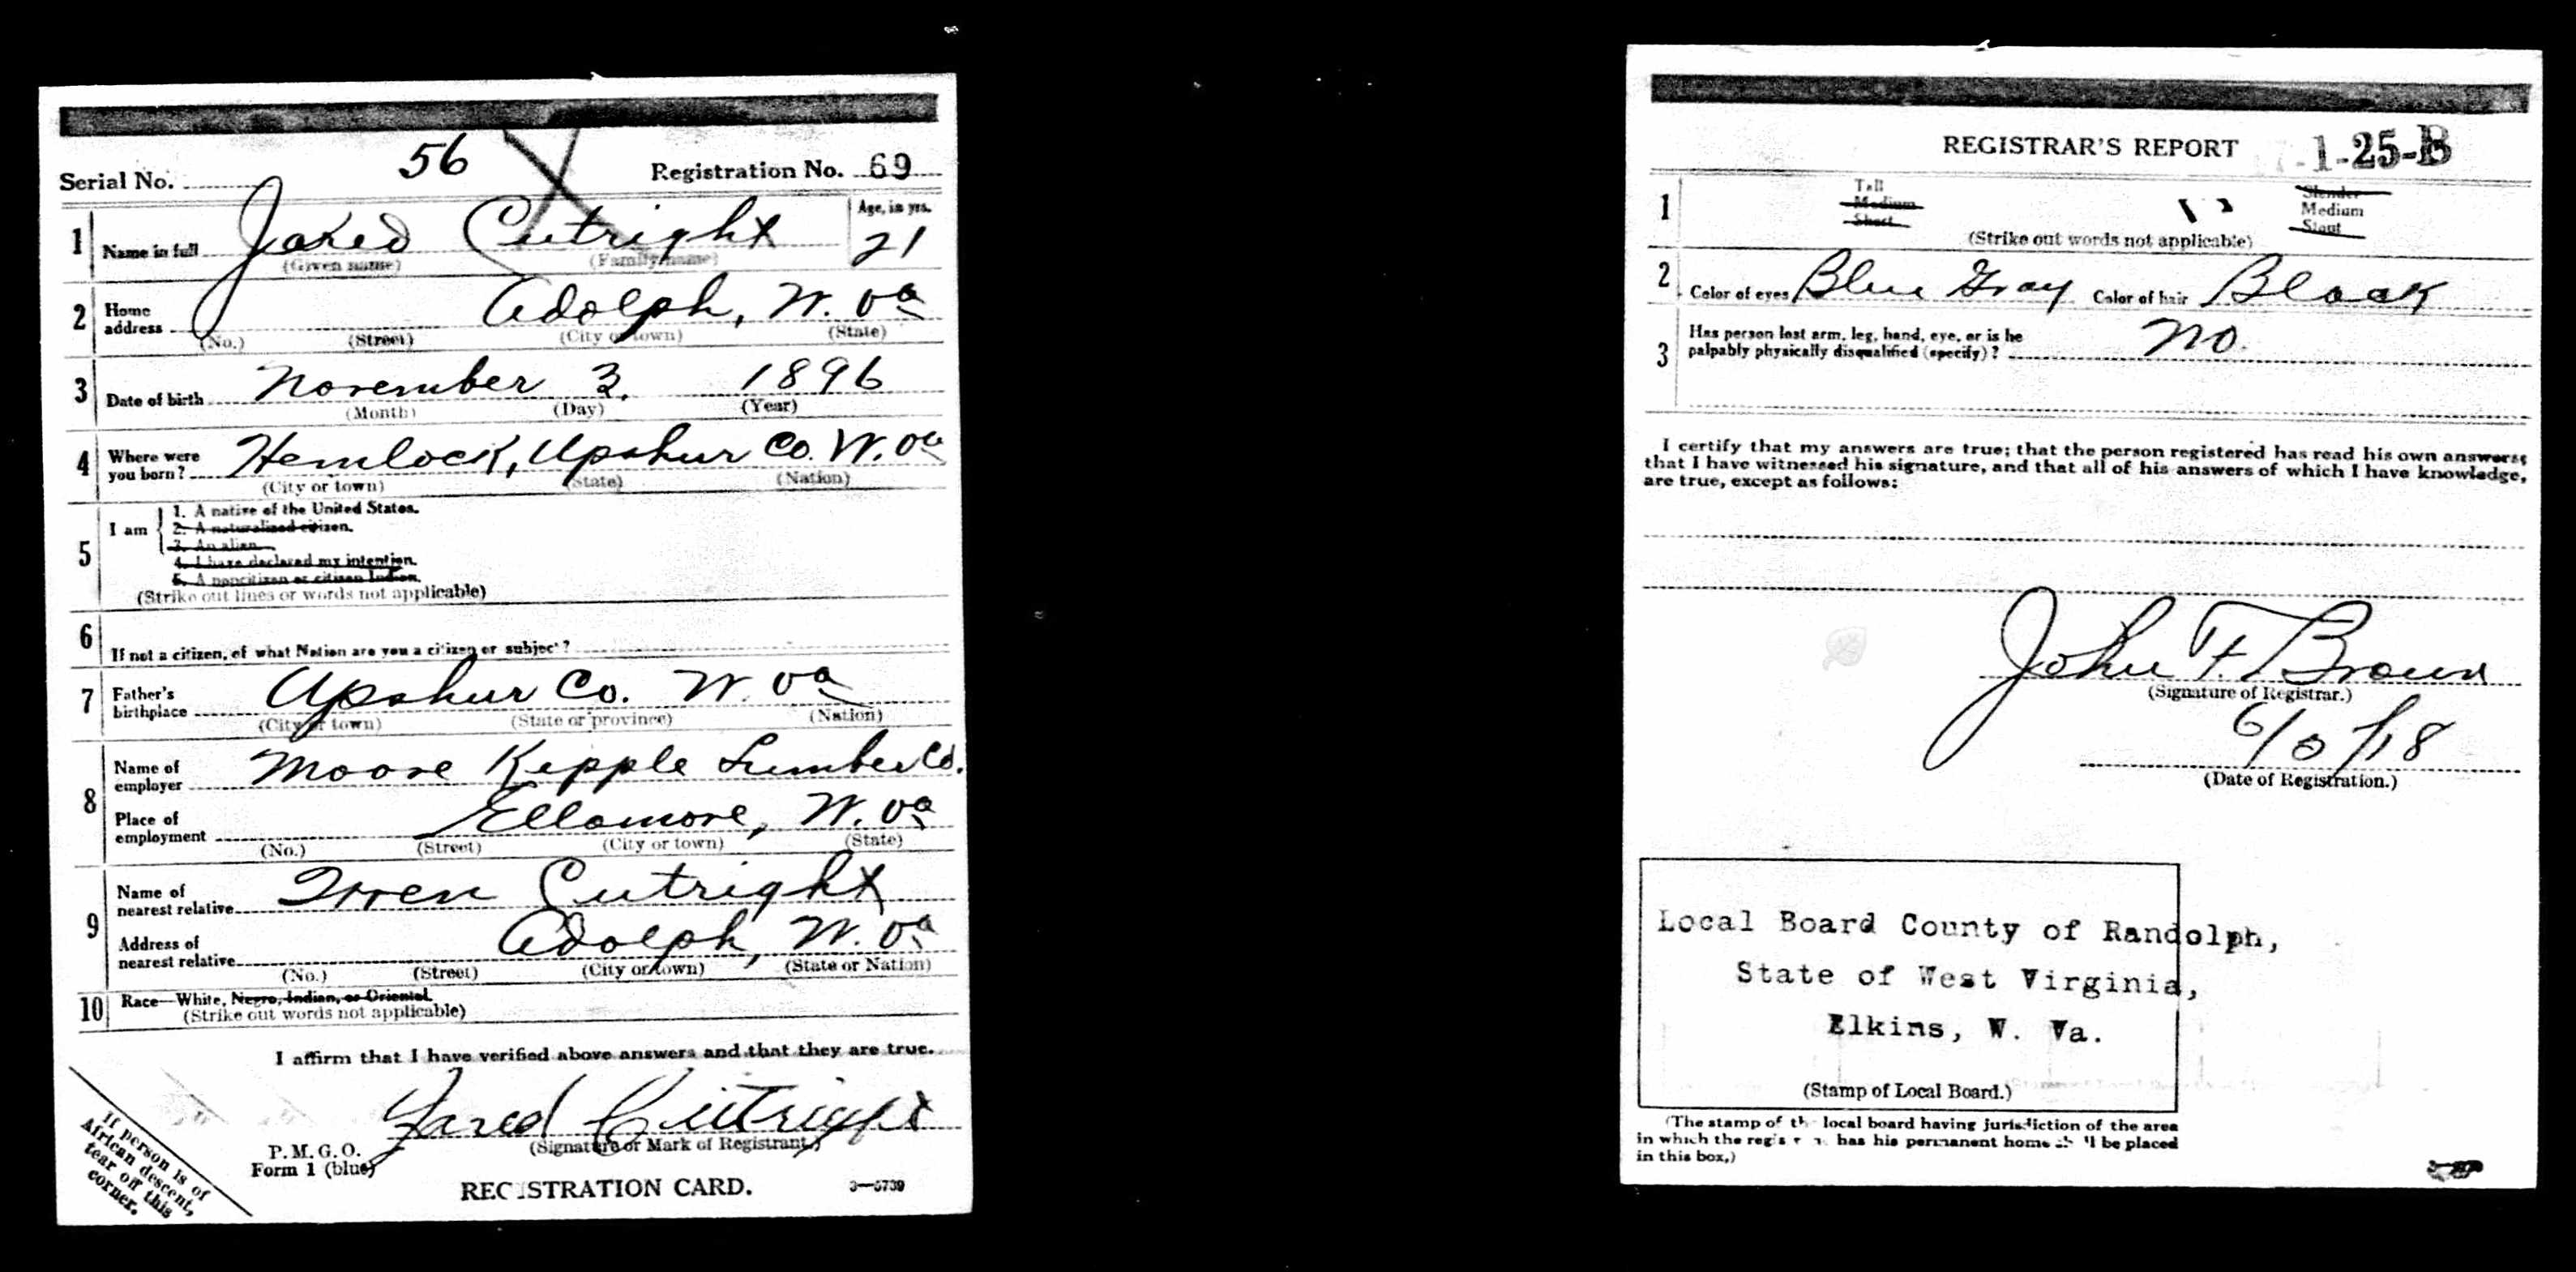 Serial No. 56 Registration No. 69
1 Name in full Jared Cutright Age, in yrs. 21
(Given name) (Family name)
2 Home address Adolph, W. Va
(No.) (Street) (City or town) (State)
3 Date of birth November 3, 1896
(Month) (Day) (Year)
4 Where were you born? Hemlock, Upshur Co. W. Va
(City or town) (State) (Nation)
5 I am
1. A native of the United States.
2. A naturalized citizen.
3. An alien.
4. I have declared my intention.
5. A noncitizen or citizen Indian.
(Strike out lines or words not applicable)
6 If not a citizen, of what Nation are you a citizen or subject?
7 Father's birthplace Upshur Co. W. Va
(City or town) (State or province) (Nation)
8 Name of employer Moore Kepple Lumber Co.
Place of employment Ellamore, W. Va
(No.) (Street) (City or town) (State)
9 Name of nearest relative Cutright
Address of nearest relative Adolph, W. Va
(No.) (Street) (City or town) (State or Nation)
10 Race—White, Negro, Indian, or Oriental.
(Strike out words not applicable)
I affirm that I have verified above answers and that they are true.
Jared Cutright
(Signature or Mark of Registrant)
P. M. G. O.
Form 1 (blue)
REGISTRATION CARD. 3—5739
If person is of
African descent,
tear off this
corner.
REGISTRAR'S REPORT 1-25-B
1 Tall Slender
Medium Medium
Short Stout
(Strike out words not applicable)
2 Color of eyes Blue Gray Color of hair Black
3 Has person lost arm, leg, hand, eye, or is he
palpably physically disqualified (specify)? No.
I certify that my answers are true; that the person registered has read his own answers;
that I have witnessed his signature, and that all of his answers of which I have knowledge,
are true, except as follows:
John F. Brown
(Signature of Registrar.)
/18
(Date of Registration.)
Local Board County of Randolph,
State of West Virginia,
Elkins, W. Va.
(Stamp of Local Board.)
(The stamp of the local board having jurisdiction of the area
in which the has his permanent home shall be placed
in this box,)